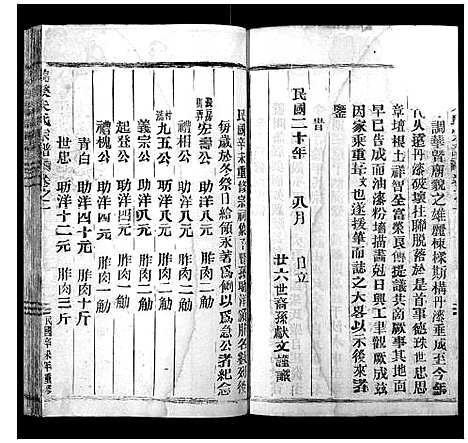 調華督廟貌之雄麗棟樑斯構丹漆垂成至今年
代久遠丹漆破壞柱聯脫落於是首事德珠世忠思
章壇根士祥智坐富榮良傳提議共商厥事其地面
早已告成而油漆粉墻描畫剋日興工里觀厥成茲
因家乘重修故也遂援筆而誌之大畧以示後來者
鑒
旹
民國二十年 八月 日立
廿六世裔孫獻文謹識
民國辛未重修宗祠樂音賢孫助洋議胙名數列後
每歲於冬祭日給領永著爲例以爲急公者紀念
宏壽公 助洋八元 胙肉一觔
九五公 助洋八元 胙肉一觔
禮相公 助洋八元 胙肉一觔
義宗公 助洋八元 胙肉一觔
起登公 助洋四元 胙肉一觔
禮槐公 助洋四元 胙肉二觔
青白 助洋四十元 胙肉十斤
世忠 助洋十二元 胙肉三斤
氏宗譜 卷之二
民國辛未年重修